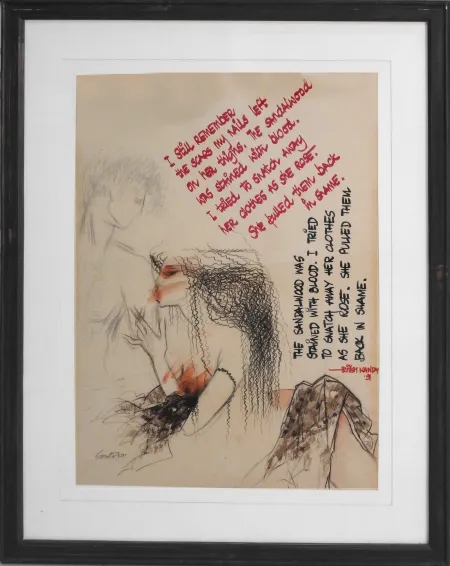 I STILL REMEMBER
THE SCARS MY NAILS LEFT
ON HER THIGHS. THE SANDALWOOD
WAS STAINED WITH BLOOD.
I TRIED TO SNATCH AWAY
HER CLOTHES AS SHE ROSE.
SHE PULLED THEM BACK
IN SHAME.
THE SANDALWOOD WAS
STAINED WITH BLOOD. I TRIED
TO SNATCH AWAY HER CLOTHES
AS SHE ROSE. SHE PULLED THEM
BACK IN SHAME.
PRITISH NANDY